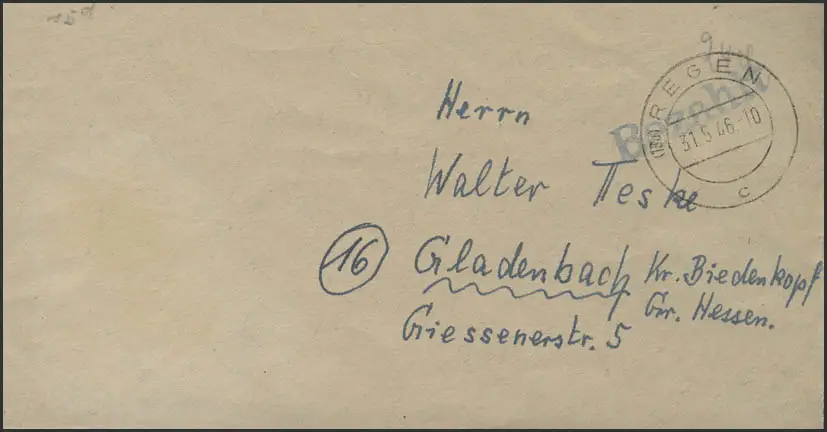 REGEN
(13b)
31.5.46.-10
c
Bezahlt
Herrn
Walter Teske
(16) Gladenbach Kr. Biedenkopf
Gr. Hessen.
Giessenerstr. 5